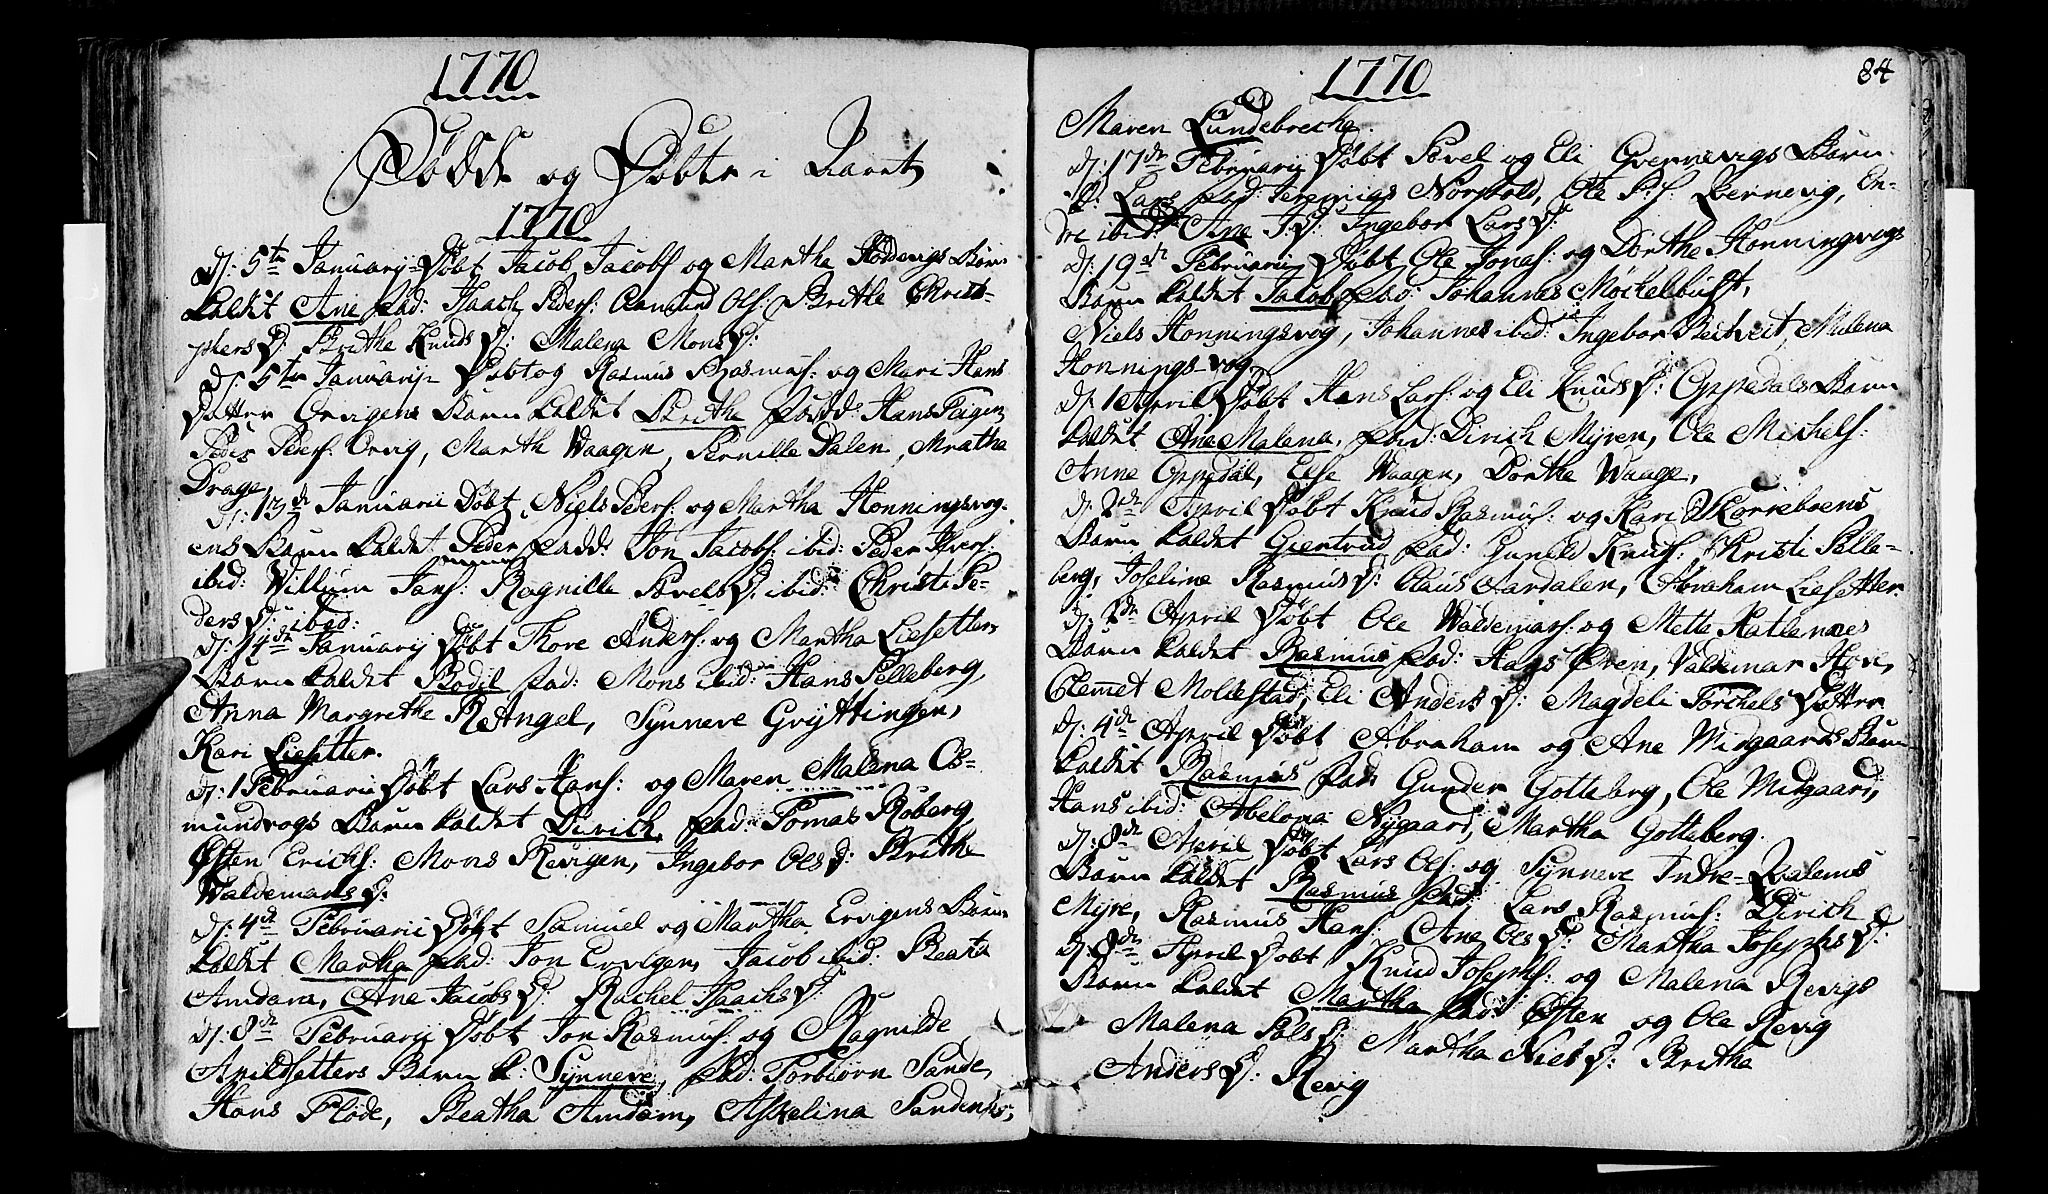 1770
Fødde og Døbte i Aaret
1770
D: 5te Januarij Døbt Jacob Jacobs: og Martha Høddevigs Barn
kaldet Ane Fad: Isach Peders: Aamund Ols: Brithe Christ-
phers D: Brithe Knuds D: Malena Mons D:
D: 5te Januarij Døbt og Rasmus Rasmus: og Mari Hans
Datter Orvigens Barn kaldet Brithe Fadd: Hans Teigen
Peder Peders: Orvig, Marth Waagen, Pernille Dalen, Mratha
Drage
D: 13de Januarii Døbt Niels Peders: og Martha Honningsvog-
ens Barn kaldet Peder Fadd: Jon Jacobs: ibid: Peder Ivers:
ibid: Willum Jans: Ragnille Povels D: ibid: Christi Pe-
ders D: ibid:
D: 14de Januarij Døbt Thore Anders: og Martha Liesetters
Barn kaldet Bodil Fad: Mons ibid: Hans Selleberg,
Anna Margrethe Refangel, Synneve Gryttingen,
Kari Liesetter.
D: 1 Februarii Døbt Lars Hans: og Maren Malena Os-
mundvogs Barn kaldet Dirich, Fad: Tomas Roberg
Østen Erichs: Mons Revigen, Ingebor Ols D: Brithe
Waldemars D:
D: 4de Februarii Døbt Samuel og Martha Ervigens Barn
kaldet Martha Fad: Jon Ervigen, Jacob ibid: Beata
Amdam, Ane Jacobs D: Rachel Isachs D:
D: 8de Februarij Døbt Jon Rasmus: og Ragnilde
Apildsetters Barn k: Synneve, Fad: Torbiørn Sande,
Hans Flode, Beatha Amdam, Askelina Sandenes,
1770
84
Maren Lundebrecha.
D: 17de Februarii Døbt Povel og Eli Gvernevigs Barn
k: Lars Fad: Jeremias Norfold, Ole P: S: Bernevig, En-
dre ibid: Ane J: D: Ingebor Lars D:
D: 19de Februarij Døbt Ole Jonas: og Dorthe Honningvogs
Barn kaldet Jacob Fad: Johannes Mockelbust,
Niels Honningsvog, Johannes ibid: Ingebor Beitveit, Malena
Honnings-vog,
D: 1 April Døbt Hans Lars: og Eli Knuds D: Oppedals Barn
kaldet Ane Malena. Fad: Dirich Myren, Ole Michels:
Anne Oppedal, Else Waagen, Dorthe Waage,
D: 2de April Døbt Knud Rasmus: og Kari Skorrebroens
Barn kaldet Giertrud Fad: Gunild Knuds: Kristi Selle-
berg, Joseline Rasmus D: Claus Aardalen, Abraham Liesetter.
D: 2de April Døbt Ole Waldemars: og Mette Hatlenæs
Barn kaldet Rasmus Fad: Hans Øren, Valdemar Hove,
Clemmet Mollestad, Eli Anders D: Magdeli Torchels Datter
D: 4de April Døbt Abraham og Ane Midgaards Barn
kaldet Rasmus Fad: Gunder Gotteberg, Ole Midgaard,
Hans ibid: Abelona Nygaard, Martha Gotteberg.
D: 8de April Døbt Lars Ols: og Synneve Indre-Qvalems
Barn kaldet Rasmus Fad: Lars Rasmus: Dirich
Myre, Rasmus Hans: Ane Ols D: Martha Josephs D:
D: 8de April Døbt Knud Josephs: og Malena Revigs
Barn kaldet Martha Fad: Østen og Ole Revig
Malena Pols D: Martha Niels D: Britha
Anders D: Revig